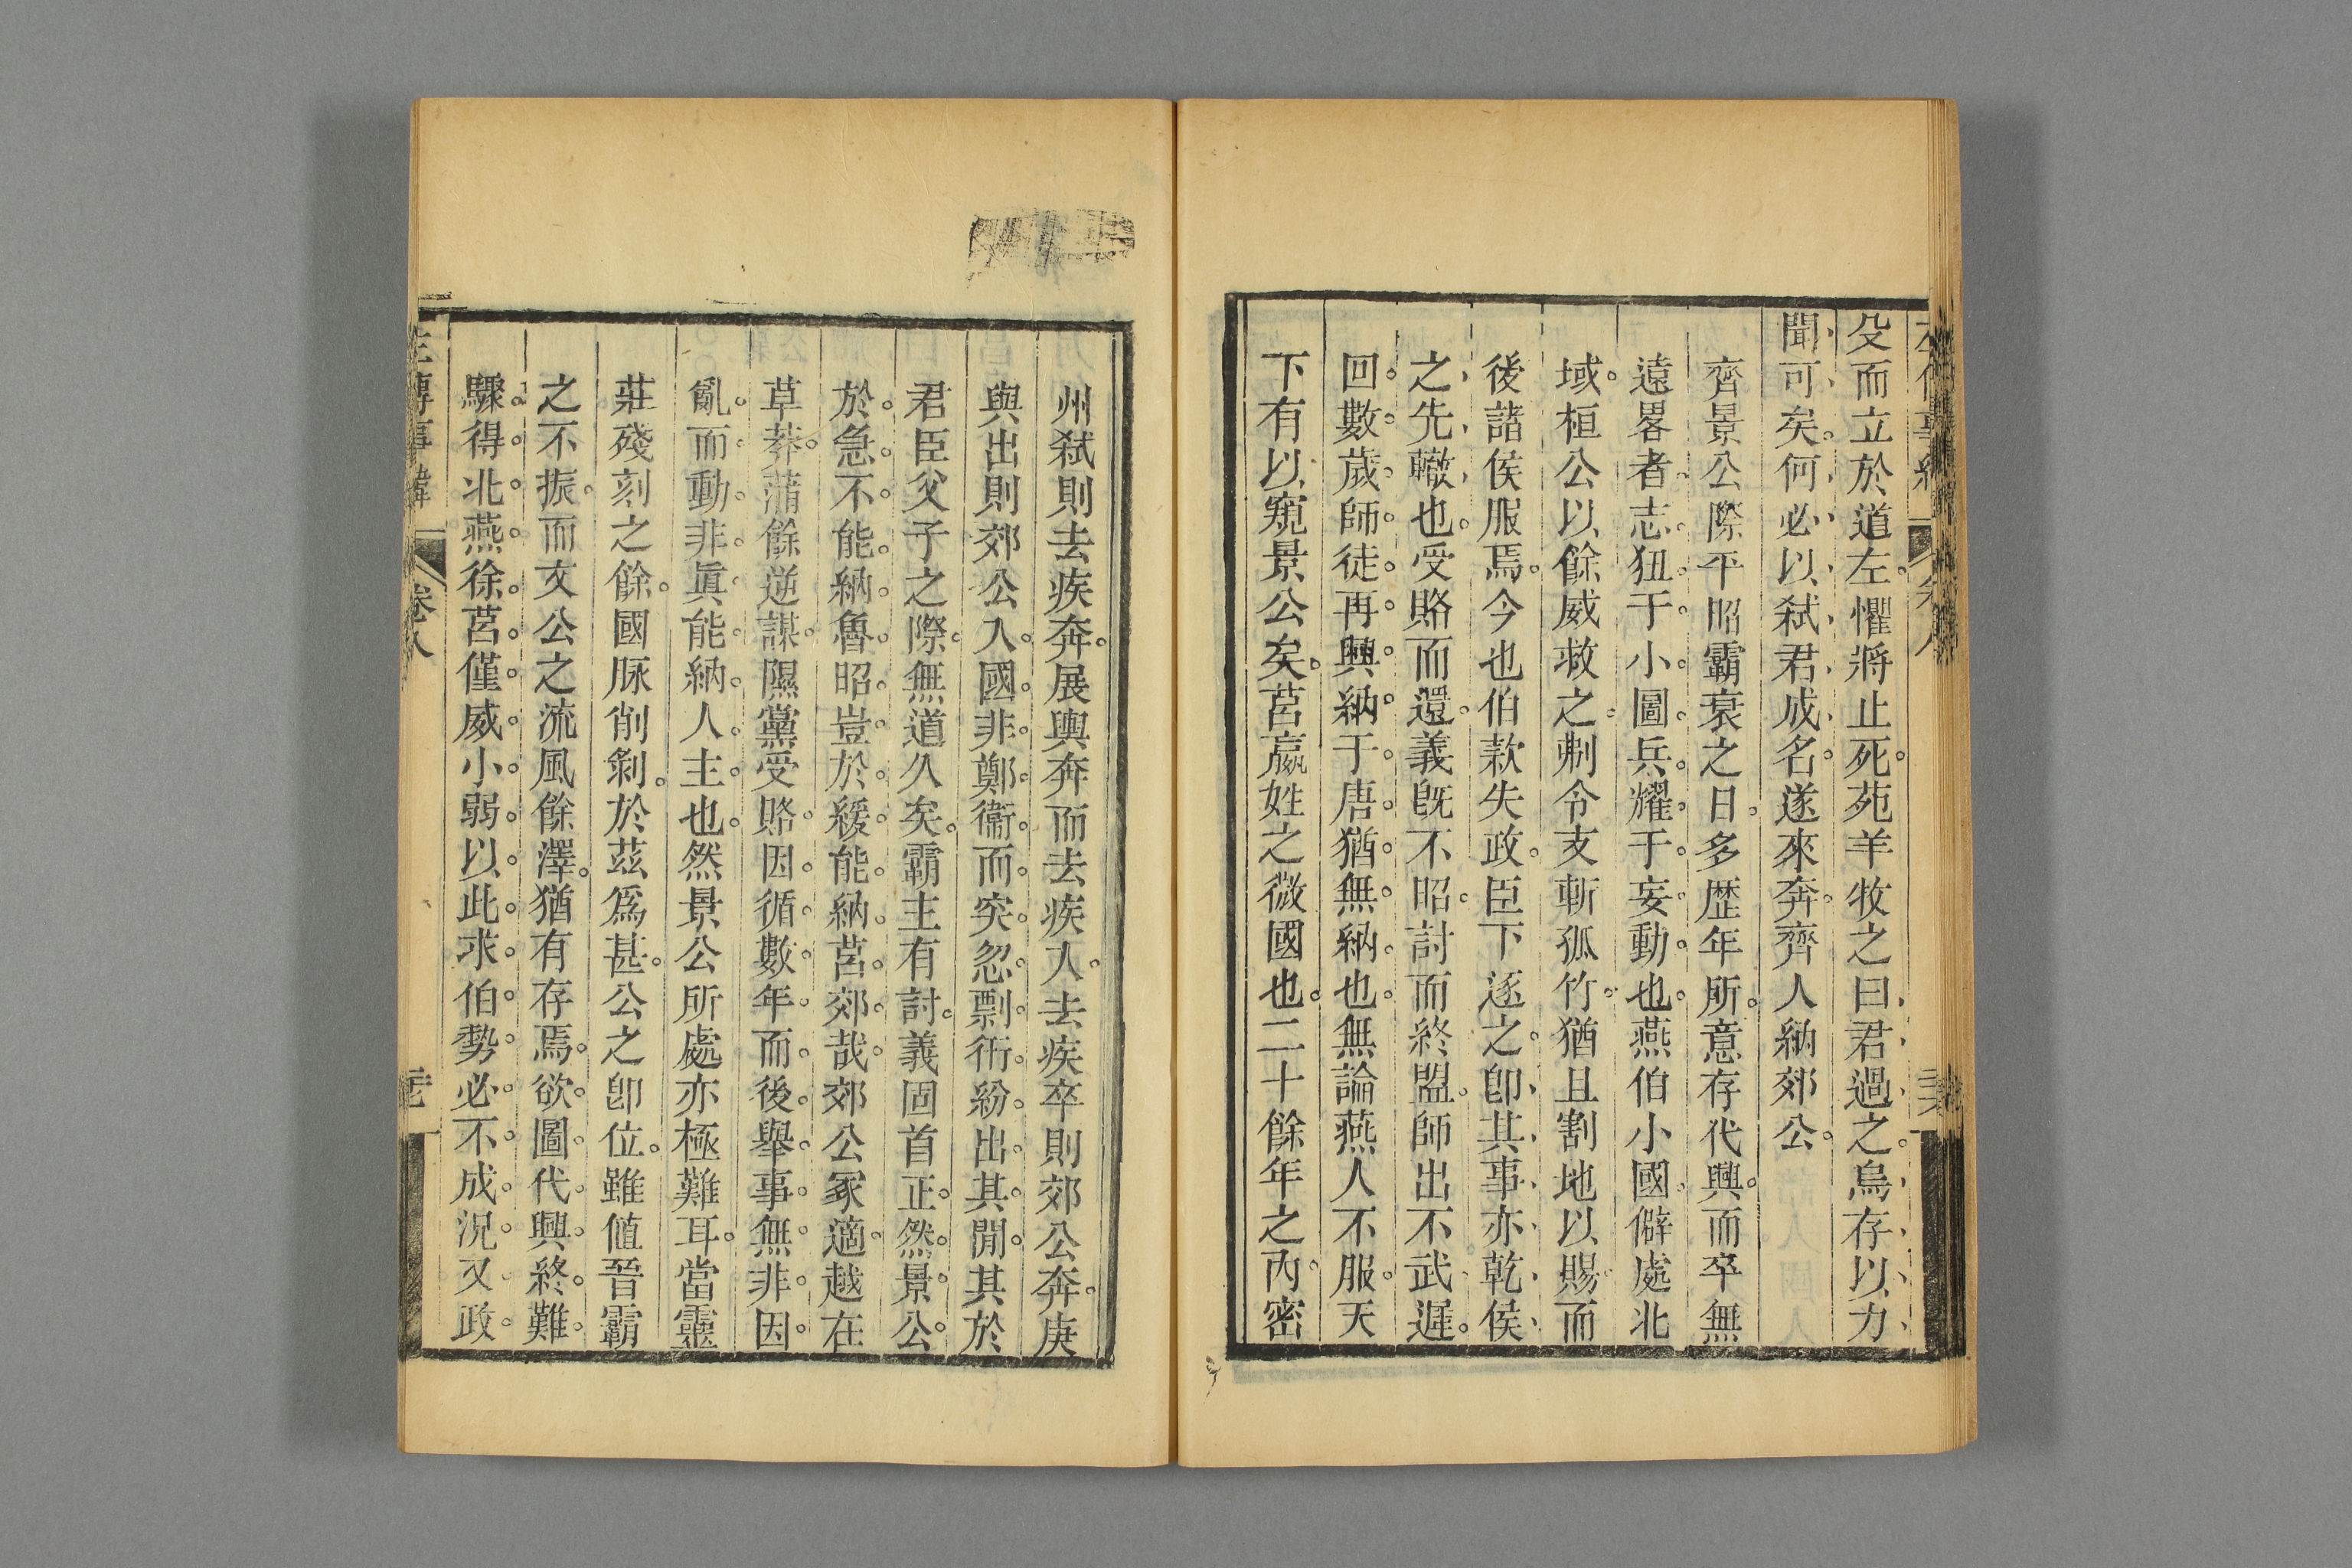 殳而立於道左懼將止死苑羊牧之曰君過之烏存以力
聞可矣何必以弑君成名遂來奔齊人納郊公
齊景公際平昭霸衰之日多歴年所意存代興而卒無
遠畧者志狃于小圖兵耀于妄動也燕伯小國僻處北
域桓公以餘威救之刜令支斬孤竹猶且割地以賜而
後諸侯服焉今也伯款失政臣下逐之卽其事亦乾侯
之先轍也受賂而還義旣不昭討而終盟師出不武遲
回數歲師徒再興納于唐猶無納也無論燕人不服天
下有以窺景公矣莒嬴姓之微國也二十餘年之内密
州弑則去疾奔展輿奔而去疾入去疾卒則郊公奔庚
與出則郊公入國非鄭衞而突忽剽衎紛出其閒其於
君臣父子之際無道久矣霸主有討義固首正然景公
於急不能納魯昭豈於緩能納莒郊哉郊公冢適越在
草莽蒲餘逆謀隰黨受賂因循數年而後舉事無非因
亂而動非眞能納人主也然景公所處亦極難耳當靈
莊殘刻之餘國脉削剝於茲爲甚公之卽位雖値晉霸
之不振而文公之流風餘澤猶有存焉欲圖代興終難
驟得北燕徐莒僅威小弱以此求伯勢必不成況又政
左傳事緯
卷八